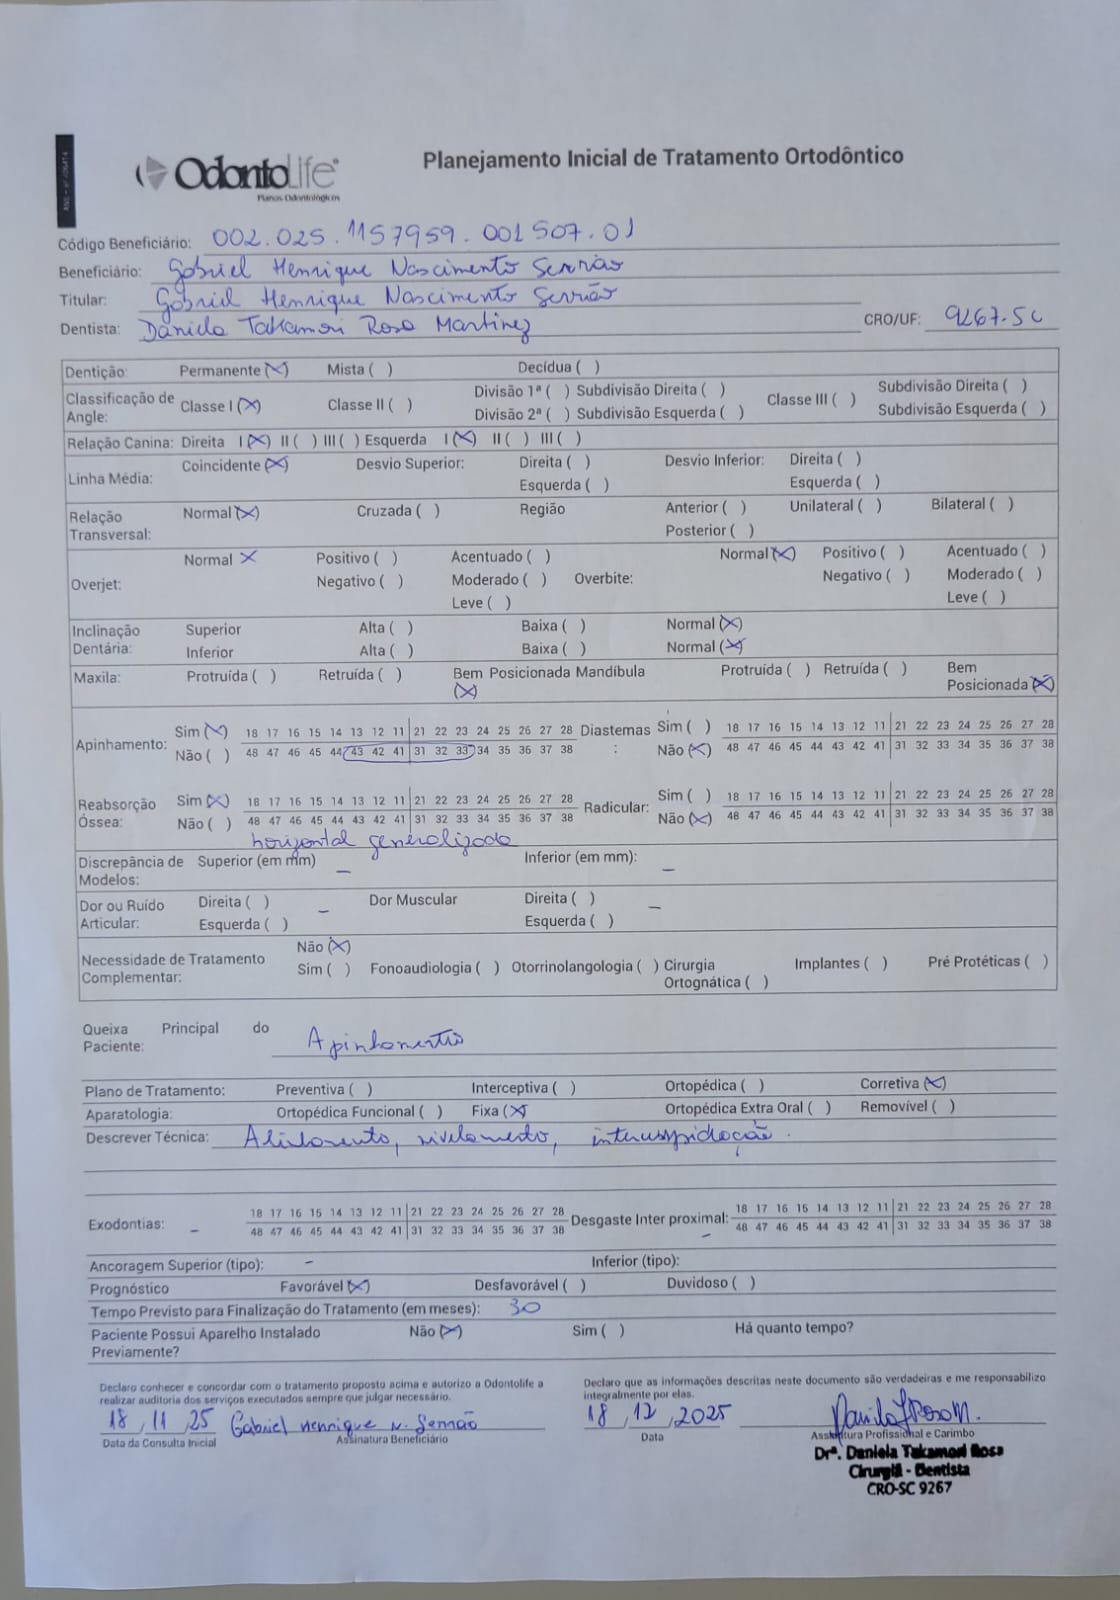 OdontoLife®
Planos Odontológicos
Planejamento Inicial de Tratamento Ortodôntico
Código Beneficiário: 002.025.1157959.001507.01
Beneficiário: Gabriel Henrique Nascimento Serrão
Titular: Gabriel Henrique Nascimento Serrão
Dentista: Daniela Takamori Rosa Martinez CRO/UF: 9267-SC
Dentição: Permanente (X) Mista ( ) Decídua ( )
Classificação de Angle: Classe I (X) Classe II ( ) Divisão 1ª ( ) Subdivisão Direita ( ) Classe III ( ) Subdivisão Direita ( )
Divisão 2ª ( ) Subdivisão Esquerda ( ) Subdivisão Esquerda ( )
Relação Canina: Direita I (X) II ( ) III ( ) Esquerda I (X) II ( ) III ( )
Linha Média: Coincidente (X) Desvio Superior: Direita ( ) Desvio Inferior: Direita ( )
Esquerda ( ) Esquerda ( )
Relação Transversal: Normal (X) Cruzada ( ) Região Anterior ( ) Unilateral ( ) Bilateral ( )
Posterior ( )
Overjet: Normal X Positivo ( ) Acentuado ( ) Overbite: Normal (X) Positivo ( ) Acentuado ( )
Negativo ( ) Moderado ( ) Negativo ( ) Moderado ( )
Leve ( ) Leve ( )
Inclinação Dentária: Superior Alta ( ) Baixa ( ) Normal (X)
Inferior Alta ( ) Baixa ( ) Normal (X)
Maxila: Protruída ( ) Retruída ( ) Bem Posicionada (X) Mandíbula Protruída ( ) Retruída ( ) Bem Posicionada (X)
Apinhamento: Sim (X) 18 17 16 15 14 13 12 11 21 22 23 24 25 26 27 28 Diastemas : Sim ( ) 18 17 16 15 14 13 12 11 21 22 23 24 25 26 27 28
Não ( ) 48 47 46 45 44 43 42 41 31 32 33 34 35 36 37 38 Não (X) 48 47 46 45 44 43 42 41 31 32 33 34 35 36 37 38
Reabsorção Óssea: Sim (X) 18 17 16 15 14 13 12 11 21 22 23 24 25 26 27 28 Radicular: Sim ( ) 18 17 16 15 14 13 12 11 21 22 23 24 25 26 27 28
Não ( ) 48 47 46 45 44 43 42 41 31 32 33 34 35 36 37 38 Não (X) 48 47 46 45 44 43 42 41 31 32 33 34 35 36 37 38
horizontal generalizada
Discrepância de Modelos: Superior (em mm) – Inferior (em mm): –
Dor ou Ruído Articular: Direita ( ) – Dor Muscular Direita ( ) –
Esquerda ( ) Esquerda ( )
Necessidade de Tratamento Complementar: Não (X)
Sim ( ) Fonoaudiologia ( ) Otorrinolangologia ( ) Cirurgia Ortognática ( ) Implantes ( ) Pré Protéticas ( )
Queixa Principal do Paciente: Apinhamento
Plano de Tratamento: Preventiva ( ) Interceptiva ( ) Ortopédica ( ) Corretiva (X)
Aparatologia: Ortopédica Funcional ( ) Fixa (X) Ortopédica Extra Oral ( ) Removível ( )
Descrever Técnica: Alinhamento, nivelamento, intercuspidação.
Exodontias: – 18 17 16 15 14 13 12 11 21 22 23 24 25 26 27 28 Desgaste Inter proximal: – 18 17 16 15 14 13 12 11 21 22 23 24 25 26 27 28
48 47 46 45 44 43 42 41 31 32 33 34 35 36 37 38 48 47 46 45 44 43 42 41 31 32 33 34 35 36 37 38
Ancoragem Superior (tipo): – Inferior (tipo):
Prognóstico Favorável (X) Desfavorável ( ) Duvidoso ( )
Tempo Previsto para Finalização do Tratamento (em meses): 30
Paciente Possui Aparelho Instalado Previamente? Não (X) Sim ( ) Há quanto tempo?
Declaro conhecer e concordar com o tratamento proposto acima e autorizo a Odontolife a
realizar auditoria dos serviços executados sempre que julgar necessário.
18/11/25 Gabriel Henrique N. Serrão
Data da Consulta Inicial Assinatura Beneficiário
Declaro que as informações descritas neste documento são verdadeiras e me responsabilizo
integralmente por elas.
18/12/2025
Data Assinatura Profissional e Carimbo
Drª. Daniela Takamori Rosa
Cirurgiã - Dentista
CRO-SC 9267